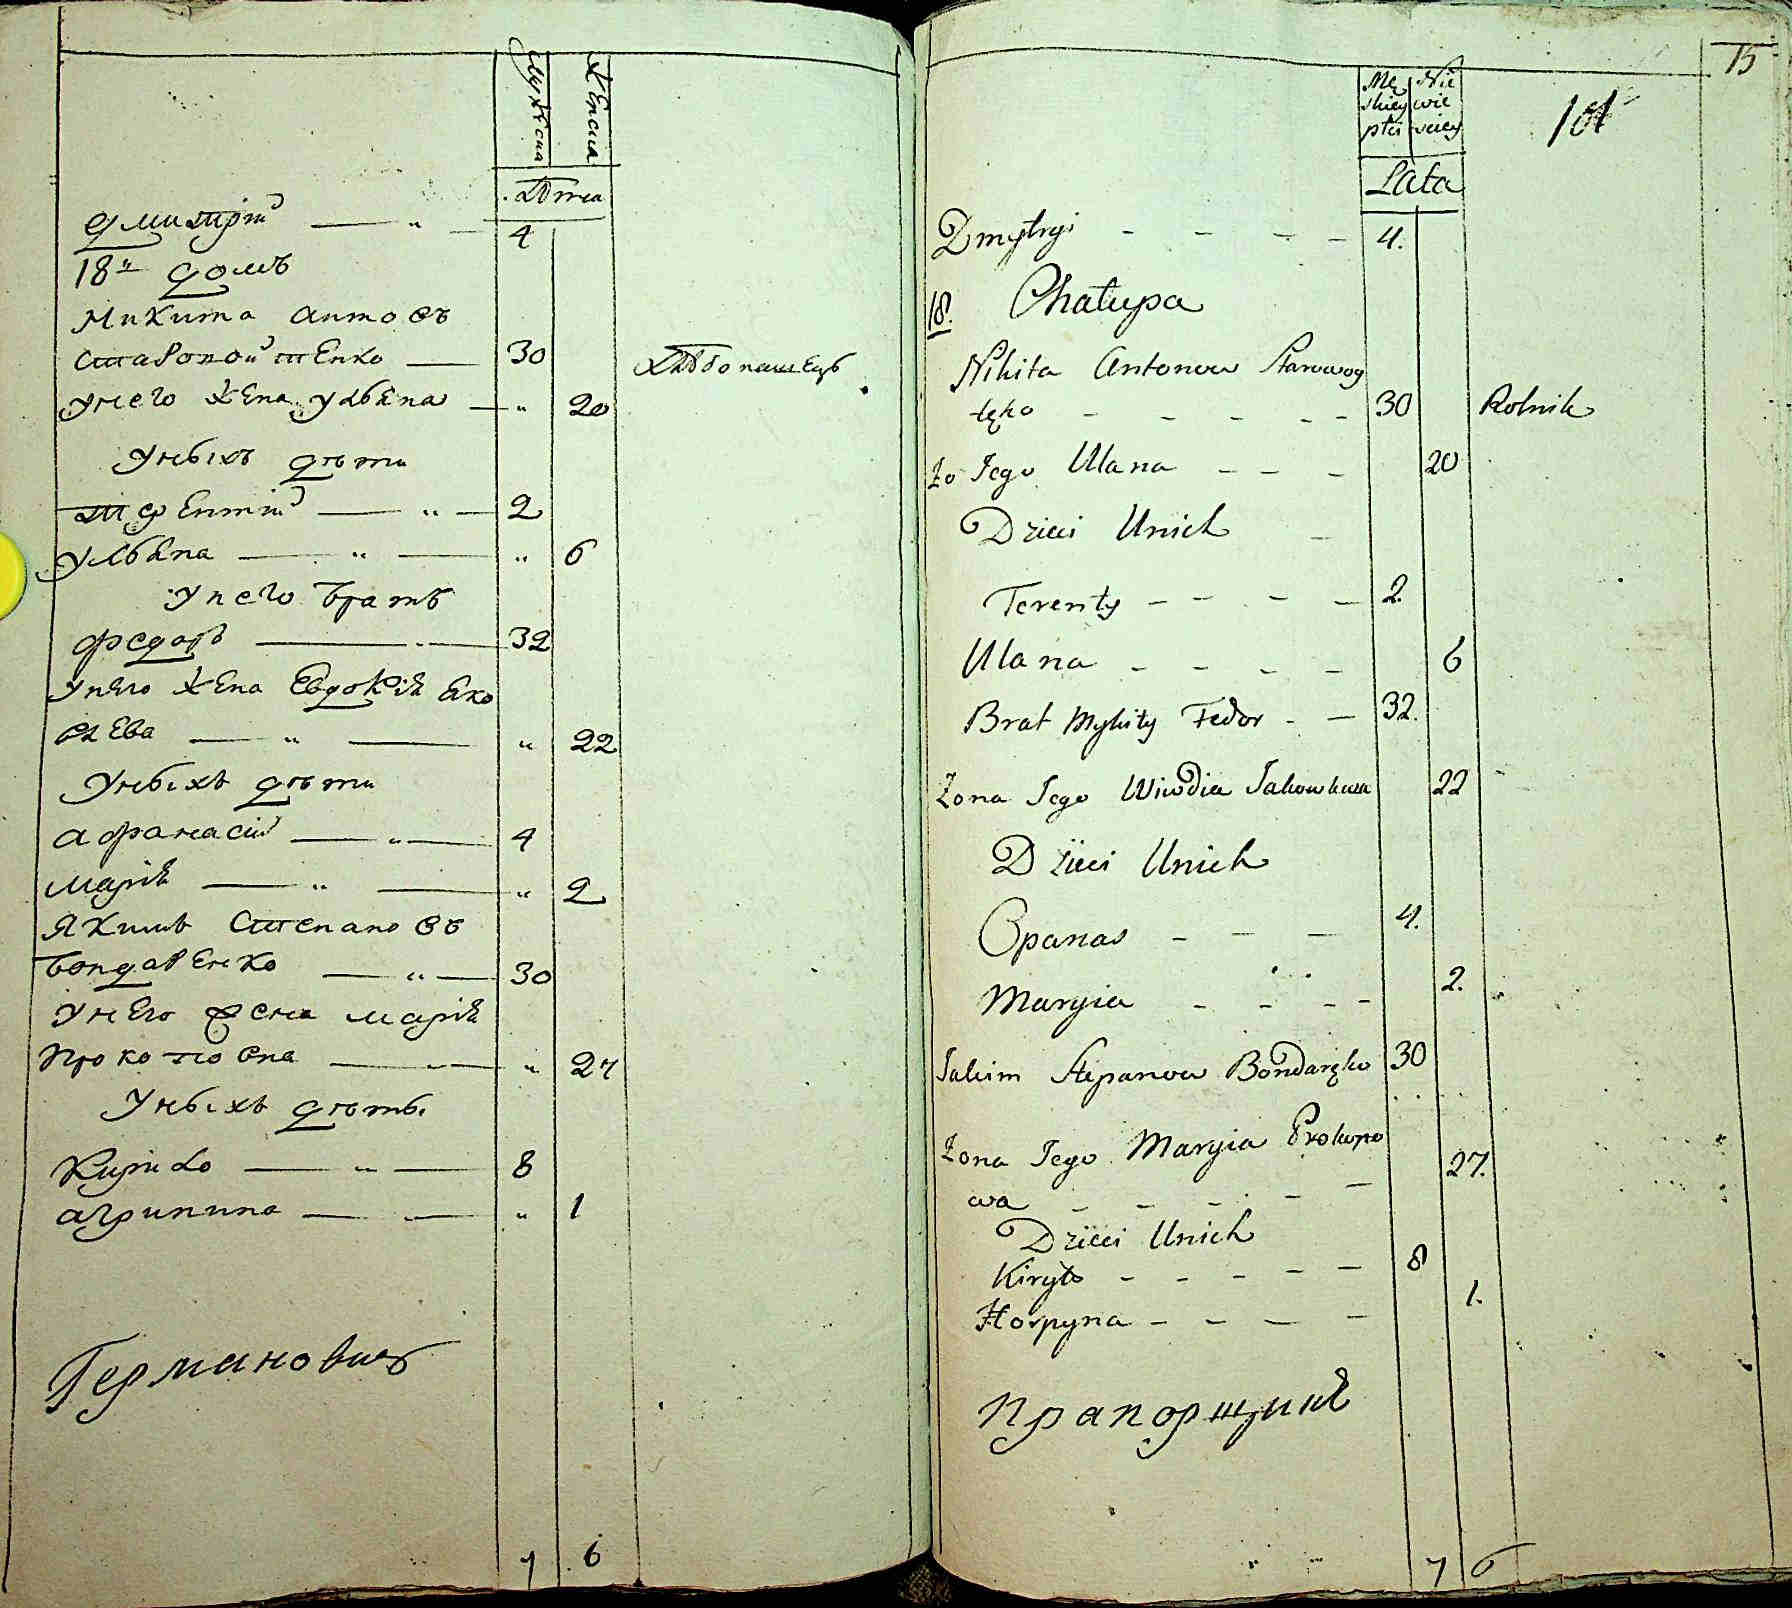 Мужеска
Женска
Лѣта
Дмитрій — " — 4
18й домъ
Микита Антовъ
Старовойтенко — 30
Хлѣбопашецъ
У него жена Ульяна — " 20
У ныхъ дѣти
Терентій — " — 2
Ульяна — " — " 6
У него братъ
Федоръ — 32
У него жена Евдокія Яко
влева — " — " 22
У ныхъ дѣти
Афанасій — " — 4
Марія — " — " 2
Якимъ Степановъ
Бондаренко — " — 30
У него жена Марія
Прокоповна — " 27
У ныхъ дѣты
Кирило — " — 8
Агрипина — " 1
Германовичъ
7 6
15
101
Mę
skiey
płci
Nie
wie
sciey
Lata
Dmytryi - - - - 4.
18. Chałupa
Nikita Antonow Starowoy
tęko - - - - - 30 Rolnik
Żo Jego Ulana - - - 20
Dzieci Unich -
Terenty - - - - 2.
Ulana - - - - 6
Brat Mykity Fedor - - 32.
Żona Jego Wiwdia Jakowlewa 22
Dzieci Unich
Opanas - - - 4.
Maryia - - - - 2.
Jakim Stepanow Bondaręko 30
Żona Jego Maryia Prokopo
wa - - - - - 27.
Dzieci Unich
Kiryło - - - - - 8
Horpyna - - - - 1.
Прапорщикъ
7 6